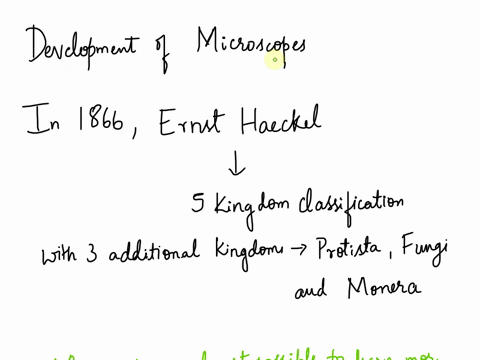 Development of Microscopes
In 1866, Ernst Haeckel
↓
5 Kingdom classification
with 3 additional Kingdoms → Protista, Fungi
and Monera
possible to